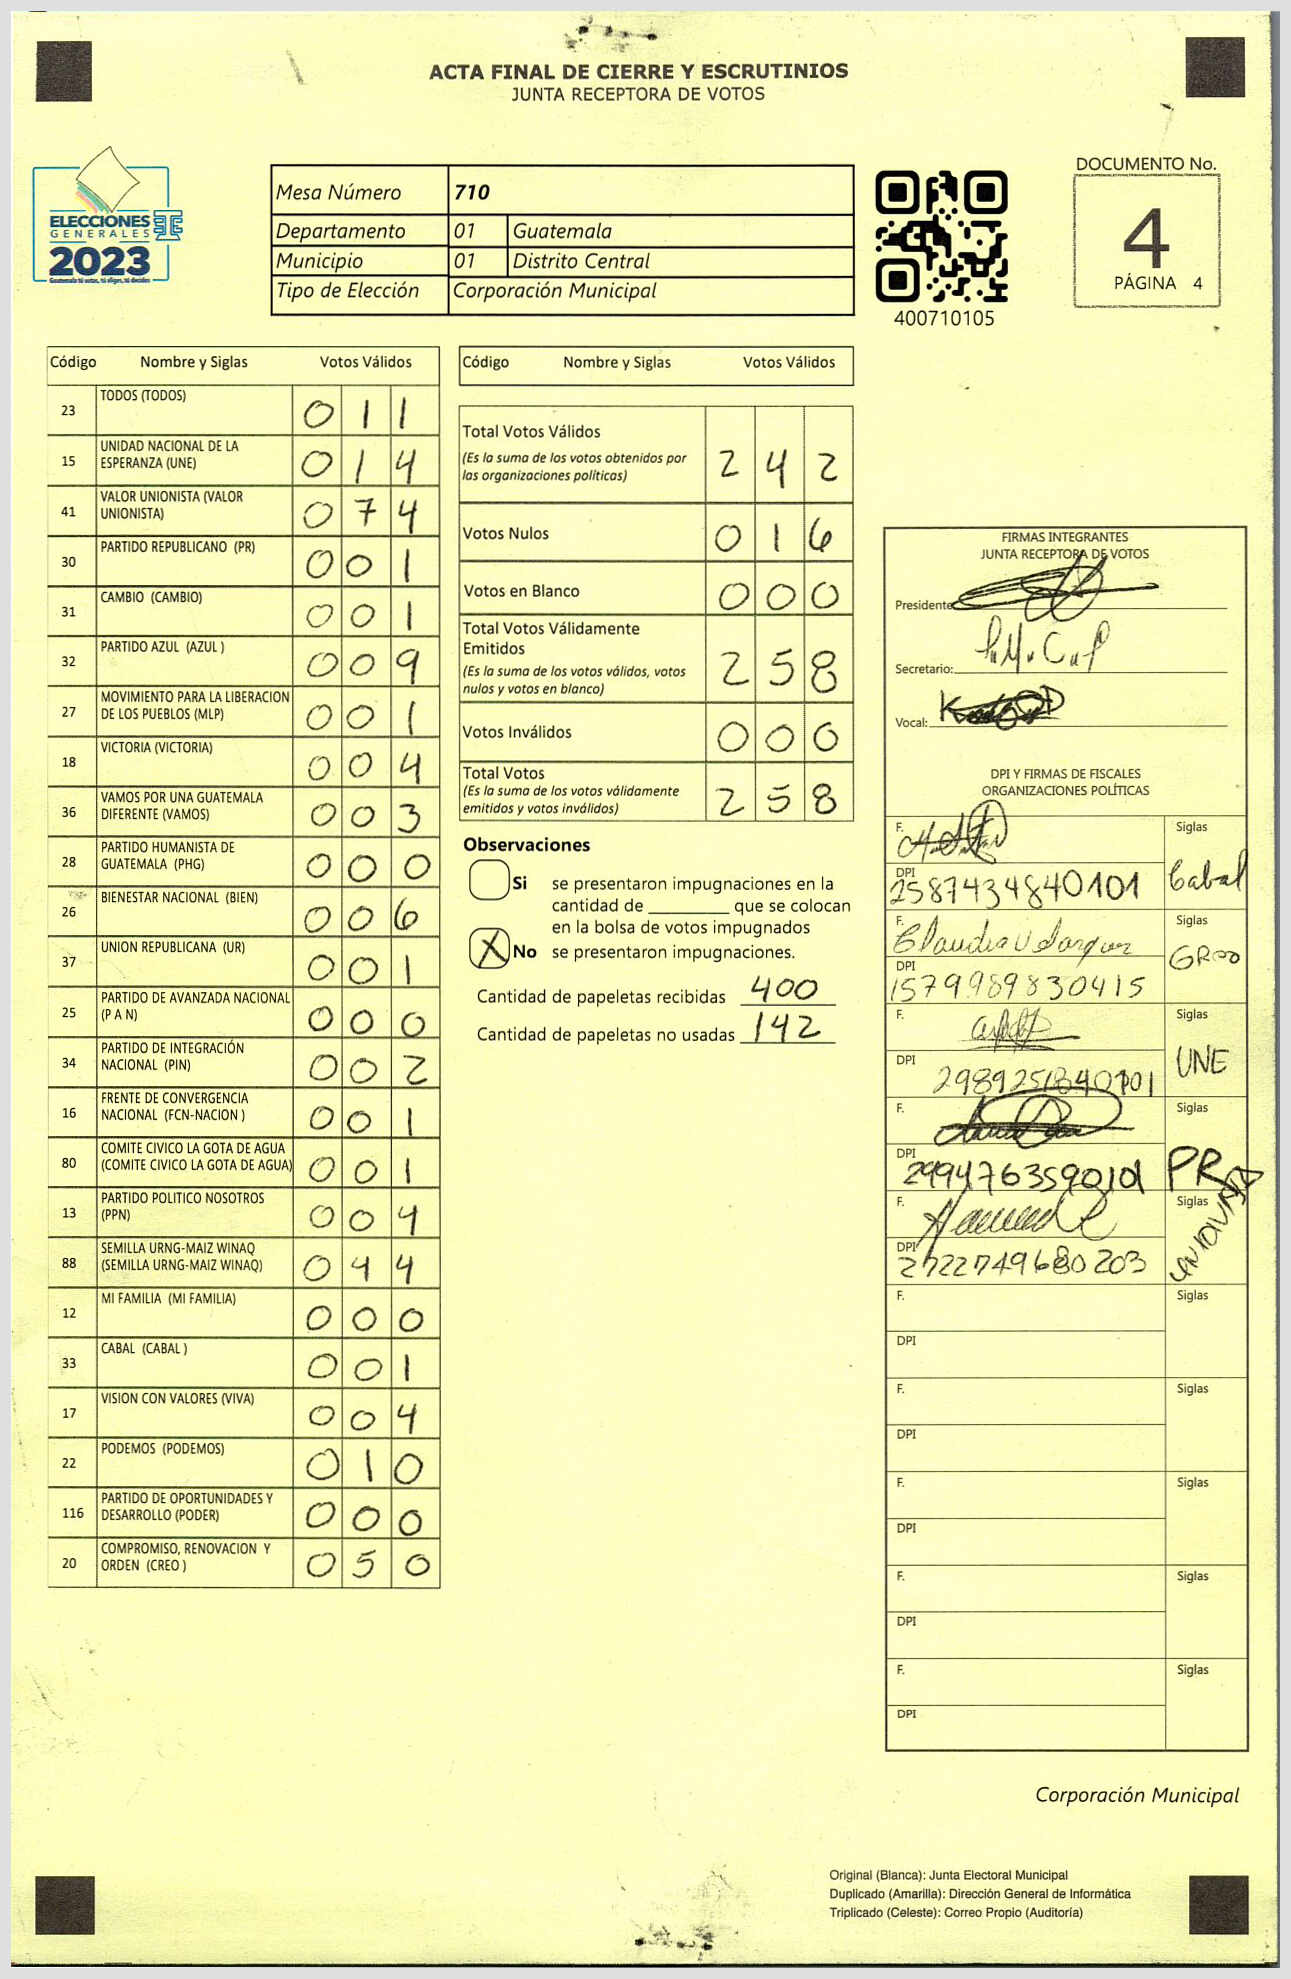 ACTA FINAL DE CIERRE Y ESCRUTINIOS
JUNTA RECEPTORA DE VOTOS
ELECCIONES
GENERALES
2023
Guatemala tú votas, tú eliges, tú decides
Mesa Número 710
Departamento 01 Guatemala
Municipio 01 Distrito Central
Tipo de Elección Corporación Municipal
400710105
DOCUMENTO No.
4
PÁGINA 4
Código Nombre y Siglas Votos Válidos
23 TODOS (TODOS) 0 1 1
15 UNIDAD NACIONAL DE LA ESPERANZA (UNE) 0 1 4
41 VALOR UNIONISTA (VALOR UNIONISTA) 0 7 4
30 PARTIDO REPUBLICANO (PR) 0 0 1
31 CAMBIO (CAMBIO) 0 0 1
32 PARTIDO AZUL (AZUL ) 0 0 9
27 MOVIMIENTO PARA LA LIBERACION DE LOS PUEBLOS (MLP) 0 0 1
18 VICTORIA (VICTORIA) 0 0 4
36 VAMOS POR UNA GUATEMALA DIFERENTE (VAMOS) 0 0 3
28 PARTIDO HUMANISTA DE GUATEMALA (PHG) 0 0 0
26 BIENESTAR NACIONAL (BIEN) 0 0 6
37 UNION REPUBLICANA (UR) 0 0 1
25 PARTIDO DE AVANZADA NACIONAL (P A N) 0 0 0
34 PARTIDO DE INTEGRACIÓN NACIONAL (PIN) 0 0 2
16 FRENTE DE CONVERGENCIA NACIONAL (FCN-NACION ) 0 0 1
80 COMITE CIVICO LA GOTA DE AGUA (COMITE CIVICO LA GOTA DE AGUA) 0 0 1
13 PARTIDO POLITICO NOSOTROS (PPN) 0 0 4
88 SEMILLA URNG-MAIZ WINAQ (SEMILLA URNG-MAIZ WINAQ) 0 4 4
12 MI FAMILIA (MI FAMILIA) 0 0 0
33 CABAL (CABAL ) 0 0 1
17 VISION CON VALORES (VIVA) 0 0 4
22 PODEMOS (PODEMOS) 0 1 0
116 PARTIDO DE OPORTUNIDADES Y DESARROLLO (PODER) 0 0 0
20 COMPROMISO, RENOVACION Y ORDEN (CREO ) 0 5 0
Código Nombre y Siglas Votos Válidos
Total Votos Válidos 2 4 2
(Es la suma de los votos obtenidos por
las organizaciones políticas)
Votos Nulos 0 1 6
Votos en Blanco 0 0 0
Total Votos Válidamente
Emitidos 2 5 8
(Es la suma de los votos válidos, votos
nulos y votos en blanco)
Votos Inválidos 0 0 0
Total Votos 2 5 8
(Es la suma de los votos válidamente
emitidos y votos inválidos)
Observaciones
Si se presentaron impugnaciones en la
cantidad de ________ que se colocan
en la bolsa de votos impugnados
X No se presentaron impugnaciones.
Cantidad de papeletas recibidas 400
Cantidad de papeletas no usadas 142
FIRMAS INTEGRANTES
JUNTA RECEPTORA DE VOTOS
Presidente
Secretario:
Vocal:
DPI Y FIRMAS DE FISCALES
ORGANIZACIONES POLÍTICAS
F. Siglas
DPI 2587434840101 Cabal
F. Siglas
DPI 1579989830415
F. Siglas
DPI UNE
F. Siglas
DPI PR
F. Siglas
DPI
F. Siglas
DPI
F. Siglas
DPI
F. Siglas
DPI
F. Siglas
DPI
F. Siglas
DPI
Corporación Municipal
Original (Blanca): Junta Electoral Municipal
Duplicado (Amarilla): Dirección General de Informática
Triplicado (Celeste): Correo Propio (Auditoría)